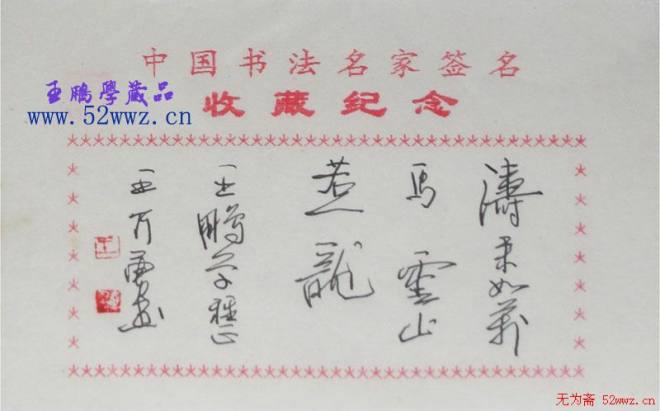 中国书法名家签名
收藏纪念
王鹏學藏品
www.52wwz.cn
濤来如萬
馬雲山
若龍
王鵬学雅正
王万
无为斋 52wwz.cn